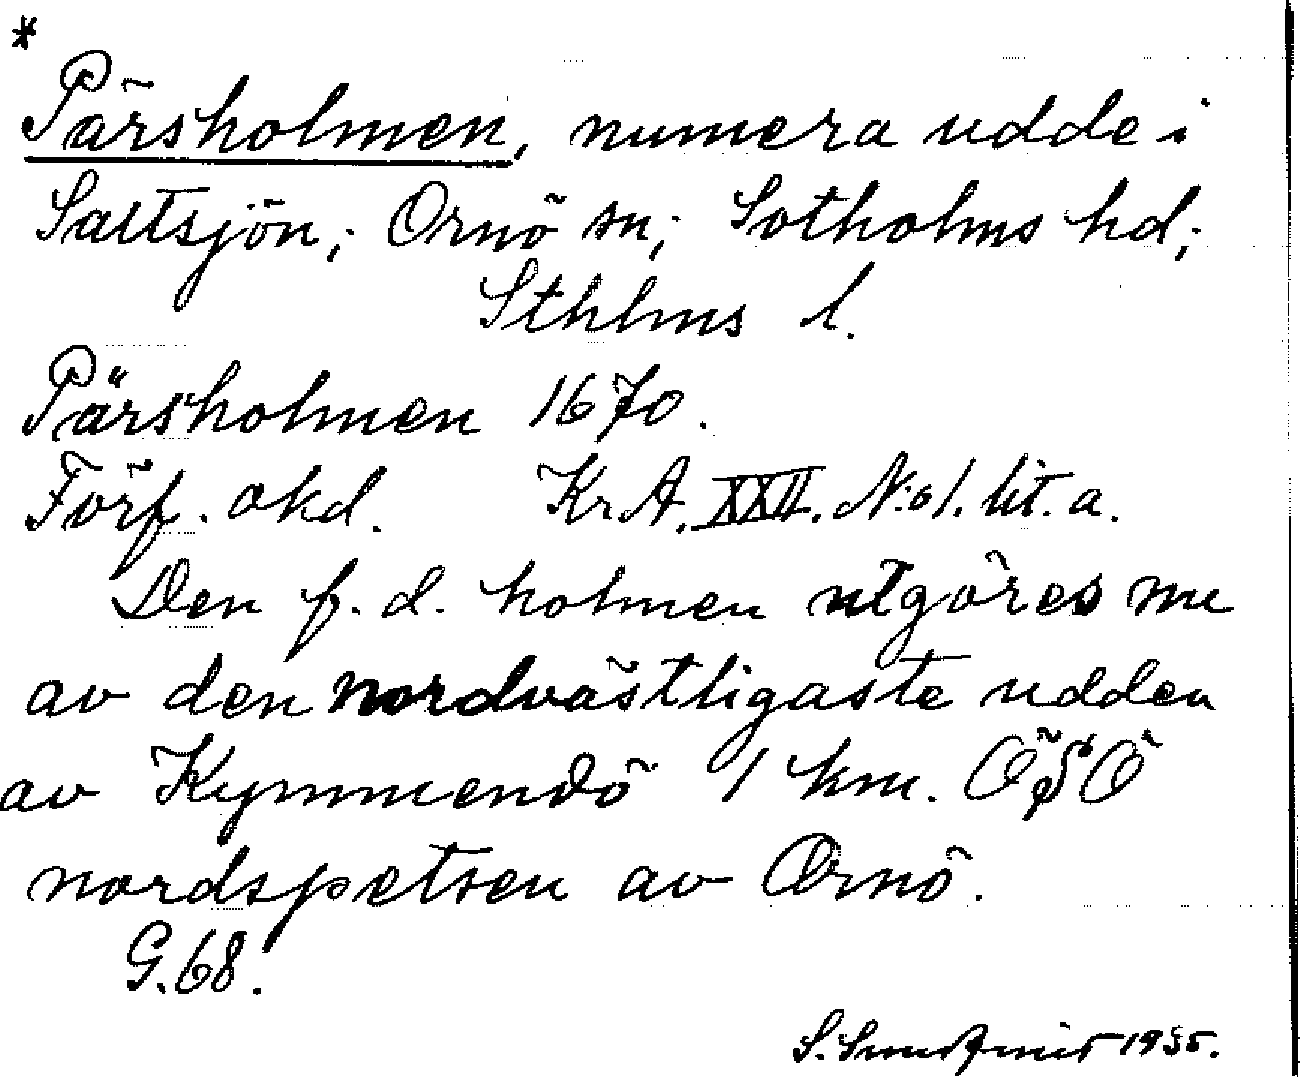 *
Pärsholmen, numera udde i
Saltsjön; Ornö sn; Sotholms hd;
Sthlms l.
Pärsholmen 1670.
Förf. okd. KrA. XXII. N:o 1. lit. a.
Den f. d. holmen utgöres nu
av den nordvästligaste udden
av Kymmendö 1 km. ÖSÖ
nordspetsen av Ornö.
G. 68.
S. 1955.